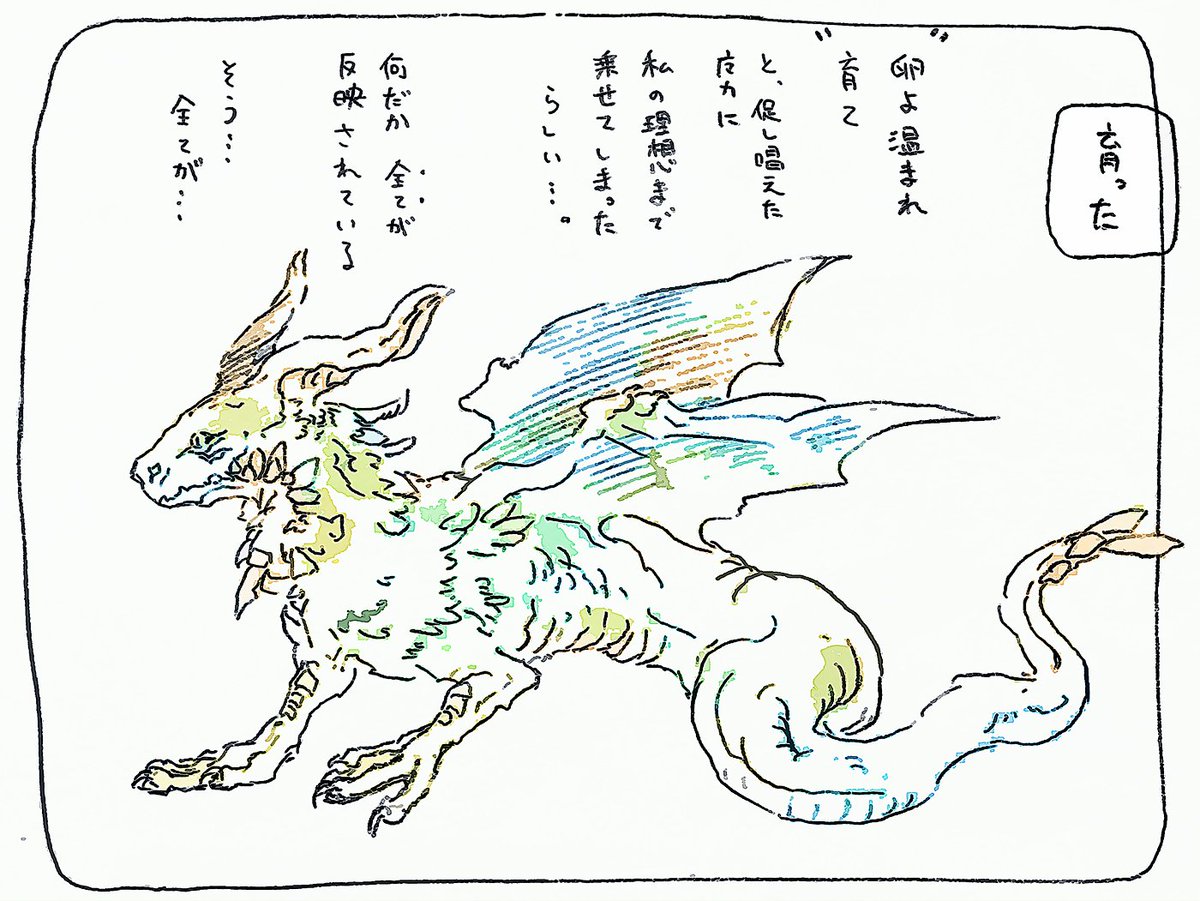 育った
"卵よ温まれ
育て"
と、促し唱えた
応力に
私の理想まで
乗せてしまった
らしい…。
何だか全てが
反映されている
そう…
全てが…